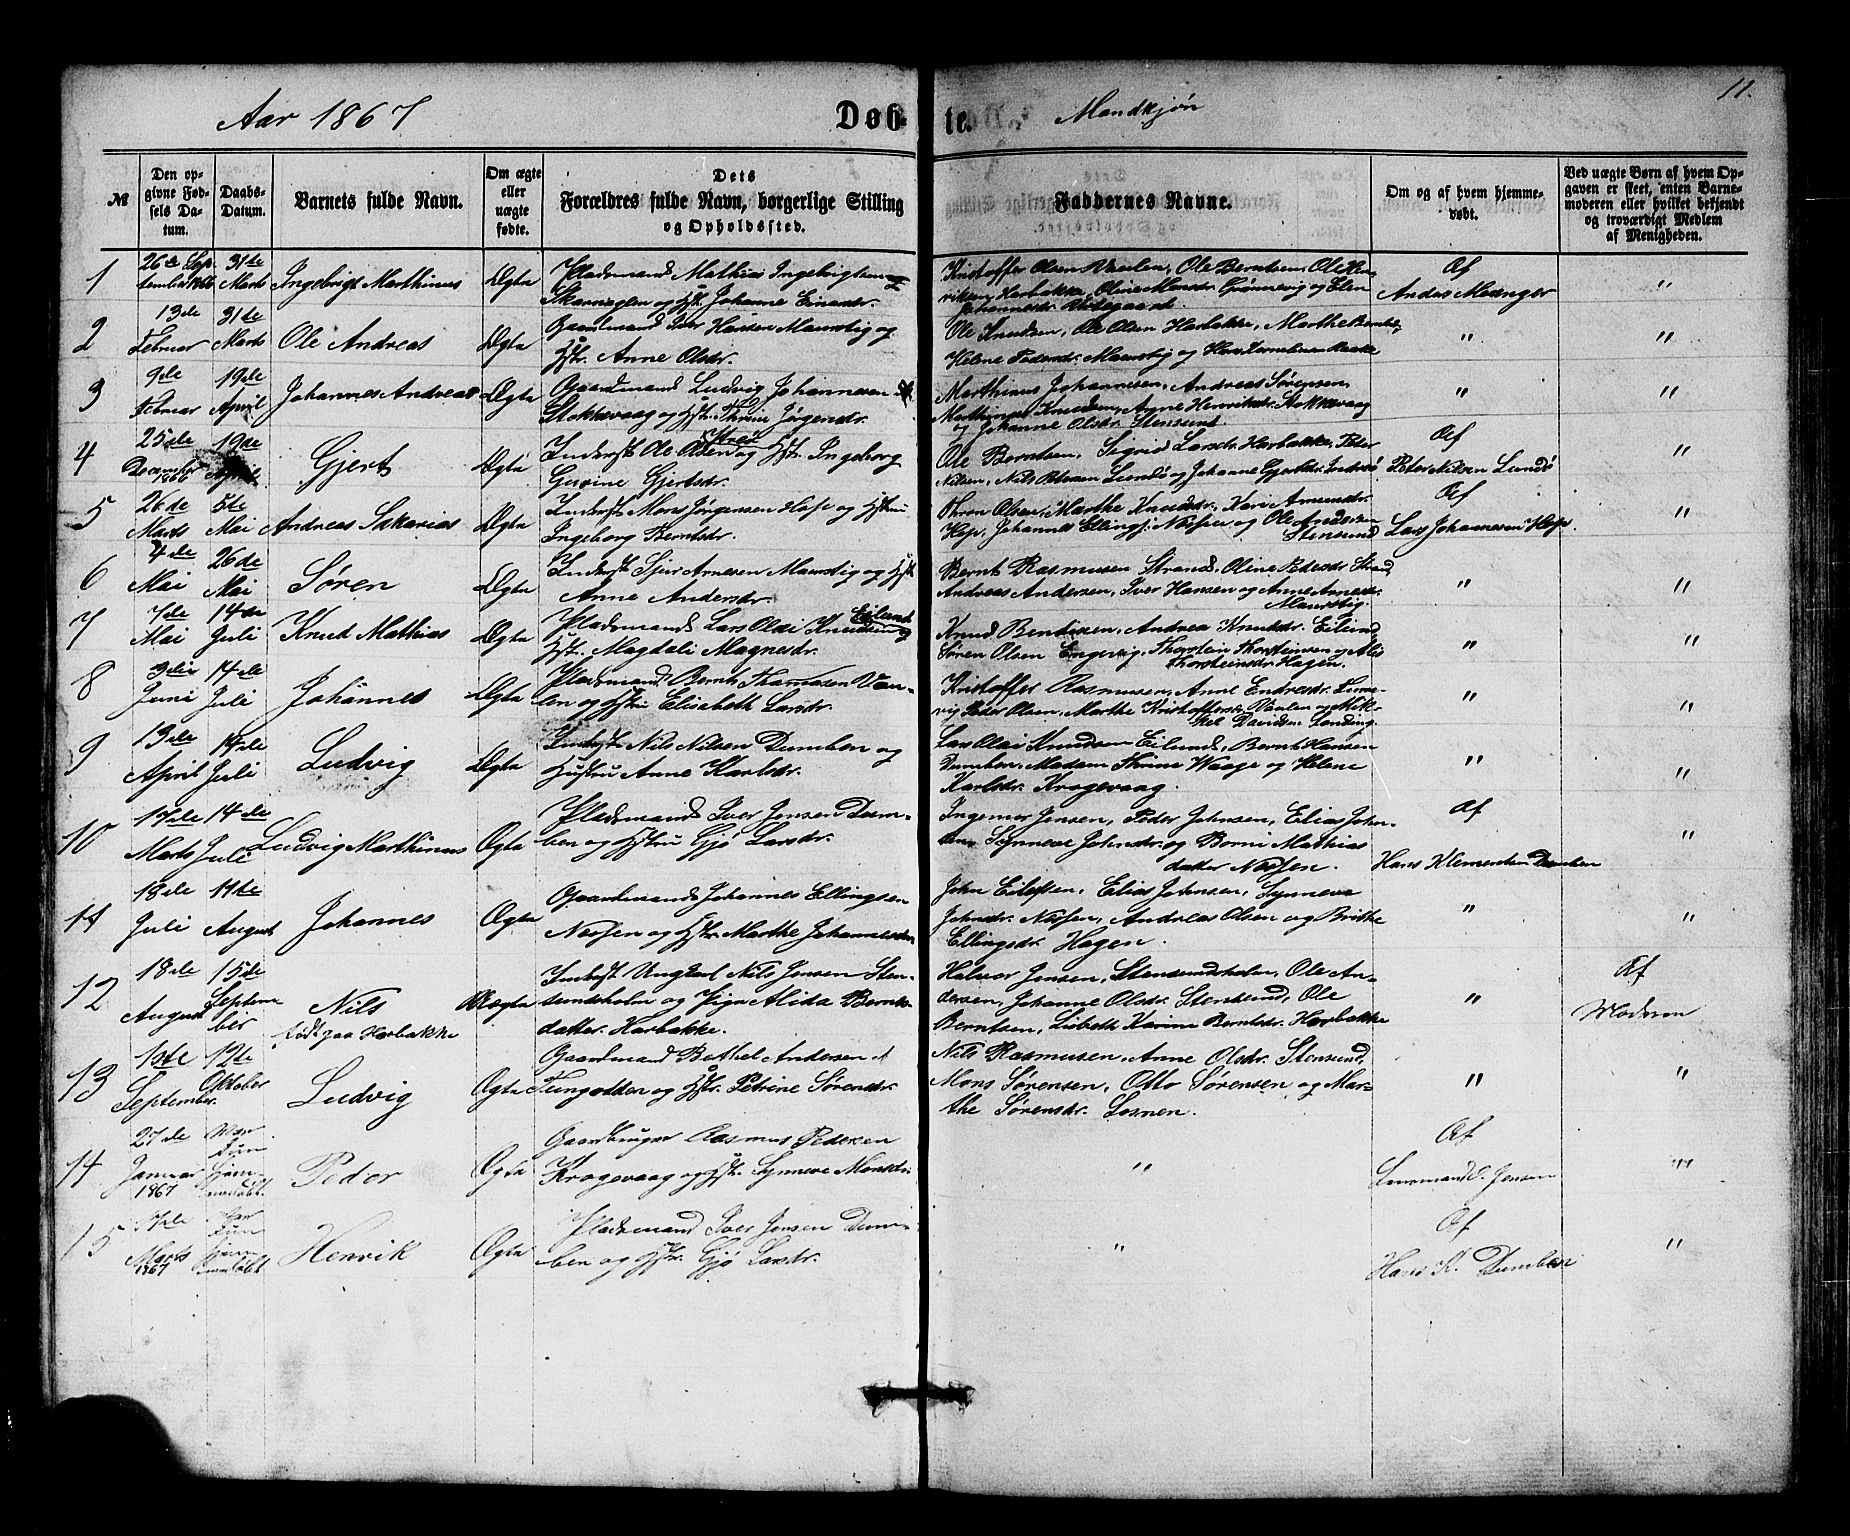 11.
Aar 1867 Døb- te. Mandkjøn
№
Den op-
givne Fød-
sels Da-
tum.
Daabs-
Datum.
Barnets fulde Navn.
Om ægte
eller
uægte
fødte.
Dets
Forældres fulde Navn, borgerlige Stilling
og Opholdssted.
Faddernes Navne.
Om og af hvem hjemme-
døbt.
Ved uægte Børn af hvem Op-
gaven er skeet, enten Barne-
moderen eller hvilket bekjendt
og troværdigt Medlem
af Menigheden.
1
26de Sep-
tember 1866
31te
Marts
Ingebrigt Marthinus
Ægte
Pladsmand Mathias Ingebrigtsen
Skarveglen og Hst. Johanne Einarsdr.
Kristoffer Olsen Værlen, Ole Berntsen, Ole Hen-
riksen Harbakke, Oline Monsdr. Grønnevig og Elen
Johannesdr. Ødegaard
Af
Andas Messnger
"
2
13de
Februar
31te
Marts
Ole Andreas
Ægte
Gaardmand Iver Hansen Maurstig og
Hstr. Anne Olsdr.
Ole Knudsen, Ole Olsen Harbakke, Marthe
Helene Pedersdr. Maurstig og
"
"
3
9de
Februar
19de
April
Johannes Andreas
Ægte
Gaardmand Ludvig Johannessen
Stokkevaag og Hstr. Thrine Jørgendr.
Marthinus Johannesen, Andreas Sørensen
Marthinus Knudsen, Anne Henriksdr. Stokkevaag
og Johanne Olsdr. Stensund.
"
"
4
25de
December
1866
19de
April
Gjert
Ægte
Inderst Ole Olsen Strøm og Hst. Ingeborg
Gurine Gjertsdr.
Ole Berntsen, Sigrid Larsdr. Harbakke, Peter
Nilsen, Nils Petersen Lundø og Johanne Gjertsdr. Indrø
Af
Peter Nilsen Lundø
"
5
26de
Marts
5te
Mai
Andreas Sakarias
Ægte
Inderst Mons Jørgensen Hop og Hstru
Ingeborg Berntsdr.
Thron Olsen, Marthe Knudsdr. Kari Amundr.
Hop, Johannes Ellings. Nessen og Ole Andersen
Stensund
Af
Lars Johannesen Hop.
"
6
4de
Mai
26de
Mai
Søren
Ægte
Inderst Sjur Arnesen Maurstig og Hst
Anne Andersdr.
Bernt Rasmusen Strand, Oline Pedersdr. Strand,
Andreas Andersen, Iver Hansen og Anne Arnesdr.
Maurstig.
"
"
7
7de
Mai
14de
Juli
Knud Mathias
Ægte
Pladsmand Lars Olai Knudsen Eilund og
Hst. Magdali Magnesdr.
Knud Bendixen, Andrea Knutsdr. Eilund,
Søren Olsen Engevig, Thorstein Thorsteinsen og Alis
Thorsteinsdr. Hagen.
"
"
8
3die
Juni
14de
Juli
Johannes
Ægte
Pladsmand Bernt Thomasen Vær-
len og Hstru Elisabeth Larsdr.
Kristoffer Rasmusen, Anne Endresdr. Leir-
vig Peder Olsen, Marthe Kristoffersdr. Værlen og Mik-
kel Davidsen Losding.
"
"
9
13de
April
14de
Juli
Ludvig
Ægte
Inderst Nils Nilsen Dumben og
Hustru Anne Karlsdr.
Lars Olai Knudsen Eilund, Bernt Hansen
Dumben, Madam Thrine Waage og Helene
Karlsdr. Kragevaag.
"
"
10
17de
Marts
14de
Juli
Ludvig Marthinus
Ægte
Pladsmand Iver Jensen Dum-
ben og Hstru Gjø Larsdr.
Ingemor Jensen, Peder Johnsen, Elias John-
sen, Synneve Johnsdr. og Borni Mathias
datter Nessen.
Af
Hans Klementsen Dumben
"
11
18de
Juli
11te
August
Johannes
Ægte
Gaardmand Johannes Ellingsen
Nessen og Hstr. Marthe Johannesdr
John Eilefsen, Elias Johnsen, Synneve
Johnsdr. Nessen, Andreas Olsen og Brithe
Ellingsdr. Hagen.
"
"
12
18de
August
15de
Septem-
ber
Nils
født paa Harbakke
Uægte
Inderst Ungkarl Nils Jensen Sten-
sundsholm og Pige Alida Bernts-
datter Harbakke.
Halvor Jensen, Stensundsholm, Ole An-
dersen, Johanne Olsdr. Stensund, Ole
Berntsen, Lisbeth Karine Berntsdr. Harbakke
"
Af
Moderen
13
10de
September.
12te
Oktober
Ludvig
Ægte
Gaardmand Bathel Andersen
Tungodden og Hstr. Petrine Sørensdr.
Nils Rasmusen, Anne Olsdr. Stensund,
Mons Sørensen, Otto Sørensen og Mar-
the Sørensdr. Losnen.
"
"
14
27de
Januar
1867
Var
kun
hjem-
medøbt.
Peder
Ægte
Gaardbruger Rasmus Pedersen
Kragevaag og Hstr. Synneve Monsdr.
"
Af
Lensmand O. Jensen
"
15
17de
Marts
1867
Var
kun
hjem-
medøbt
Henrik
Ægte
Pladsmand Iver Jensen Dum-
ben og Hstr. Gjø Larsdr.
"
Af
Hans K. Dumben
"